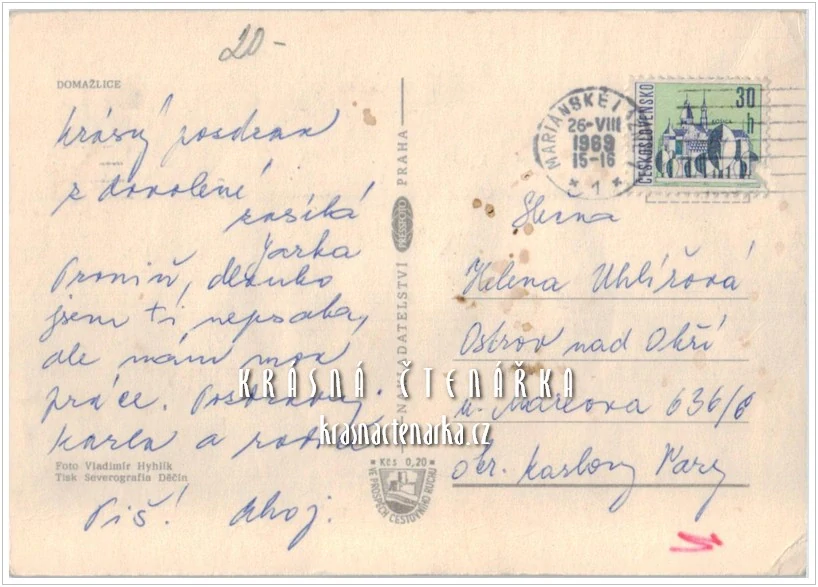 20-
DOMAŽLICE
Krásný pozdrav
z dovolené
zasílá
Jarka
Promiň, dlouho
jsem ti nepsala,
ale mám moc
práce. Pozdravuj
Karla a rodiče
Foto Vladimír Hyhlík
Tisk Severografia Děčín
Piš! Ahoj.
NAKLADATELSTVÍ PRESSFOTO PRAHA
Kčs 0,20
VE PROSPĚCH CESTOVNÍHO RUCHU
MARIÁNSKÉ
26-VIII
1969
15-16
1
ČESKOSLOVENSKO
30
h
Helena Uhlířová
Ostrov nad Ohří
636/6
okr. Karlovy Vary
KRÁSNÁ ČTENÁŘKA
krasnactenarka.cz